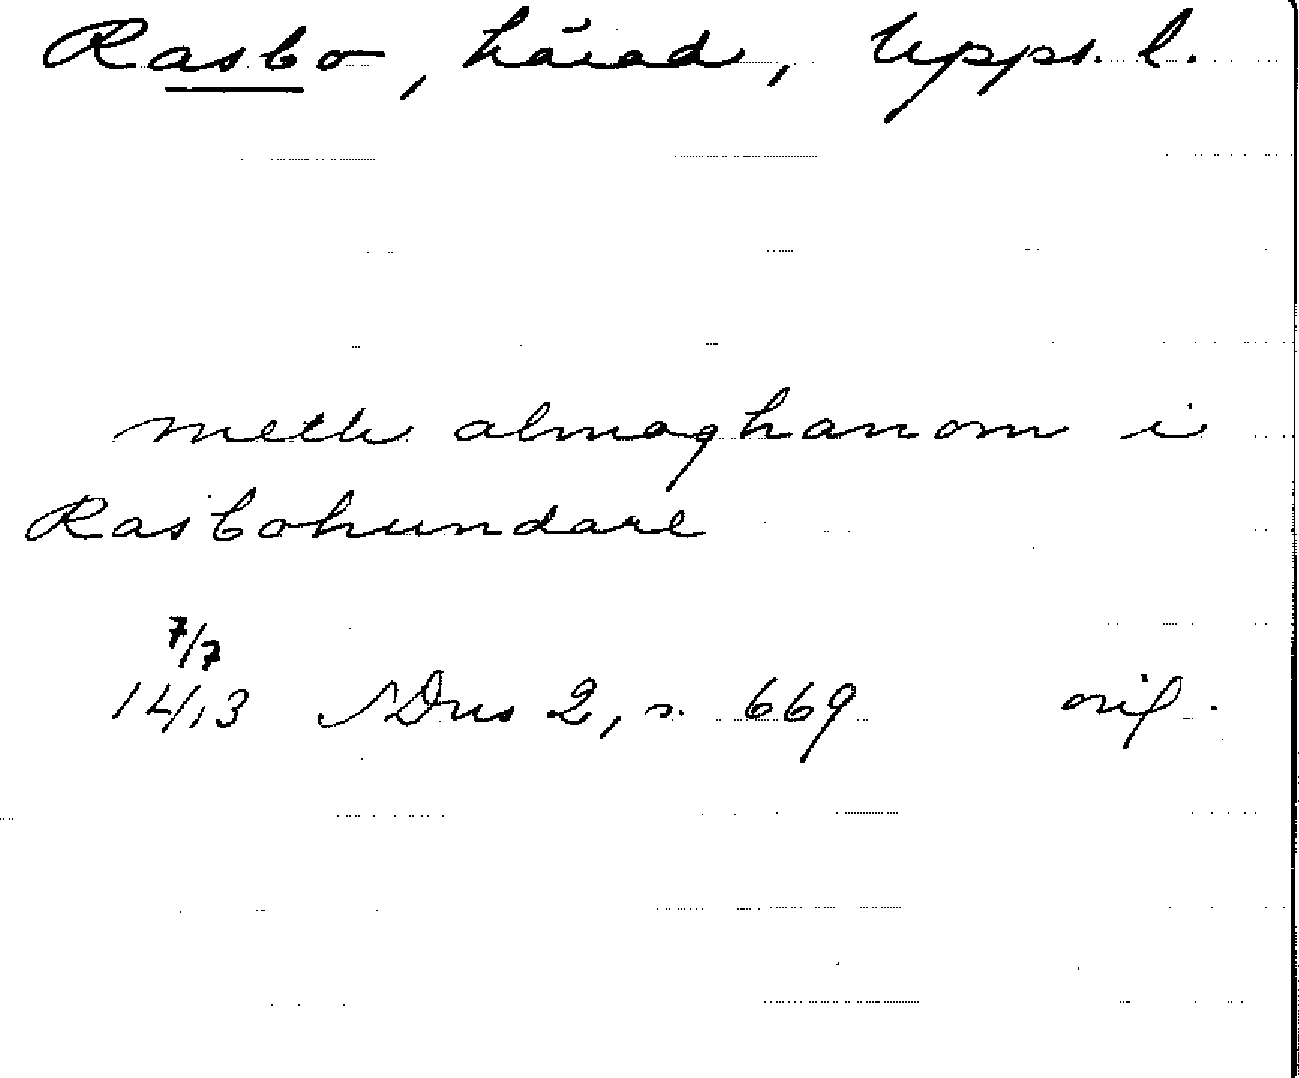 Rasbo, härad, Upps. l.
meth almoghanom i
Rasbohundare
7/7
14/13 SDns 2, s. 669 orig.